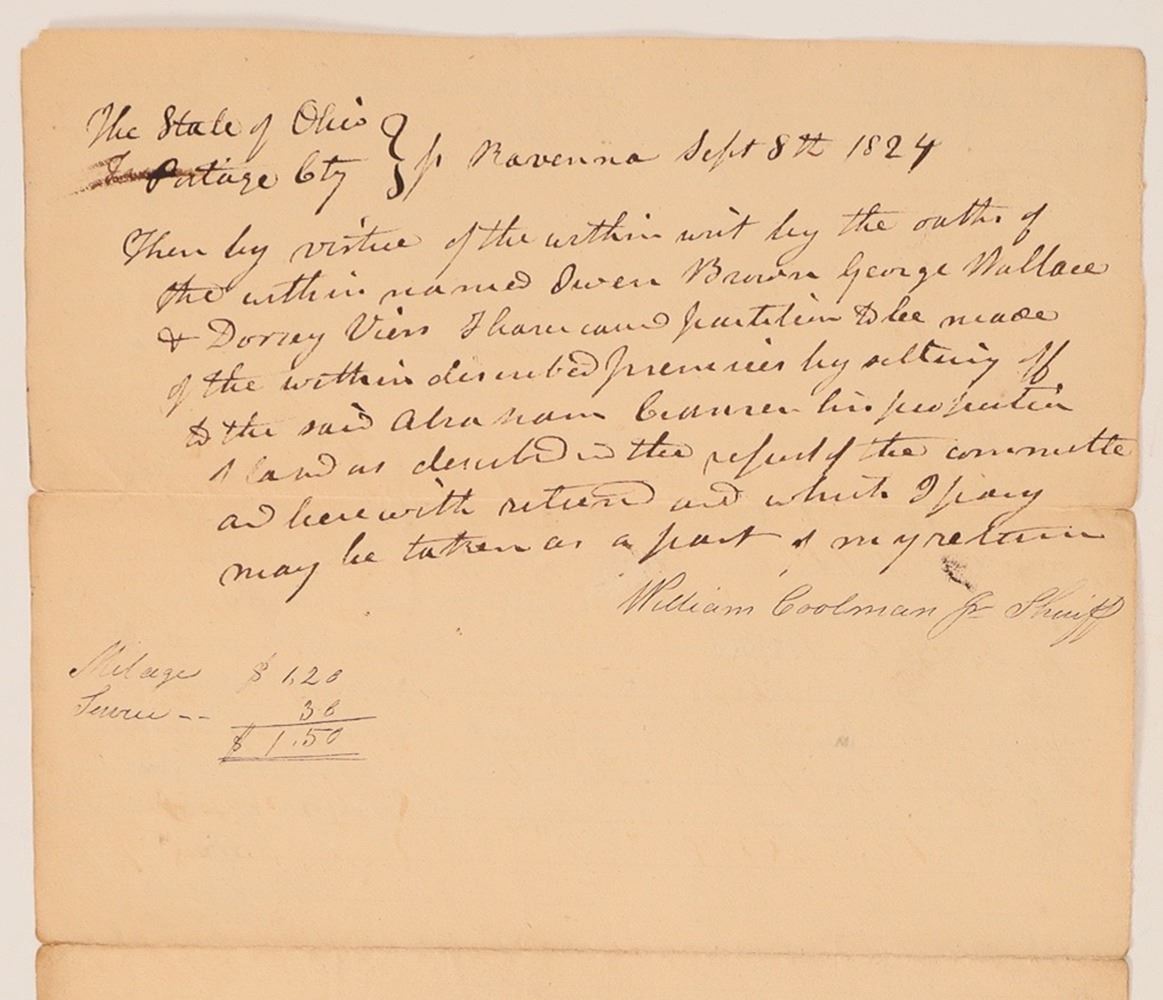 The State of Ohio }
Portage Cty } ss Ravenna Sept 8th 1824
Then by virtue of the within writ by the oaths of
the within named Owen Brown George Wallace
& Dorsey Viers I have caused partition to be made
of the within described premises by setting off
to the said Abraham his proportion
of land as described in the report of the committe
and herewith returnd and which I pray
may be taken as a part of my return
William Coolman Jr Sheriff
Milage $ 1.20
Service -- 30
$ 1.50